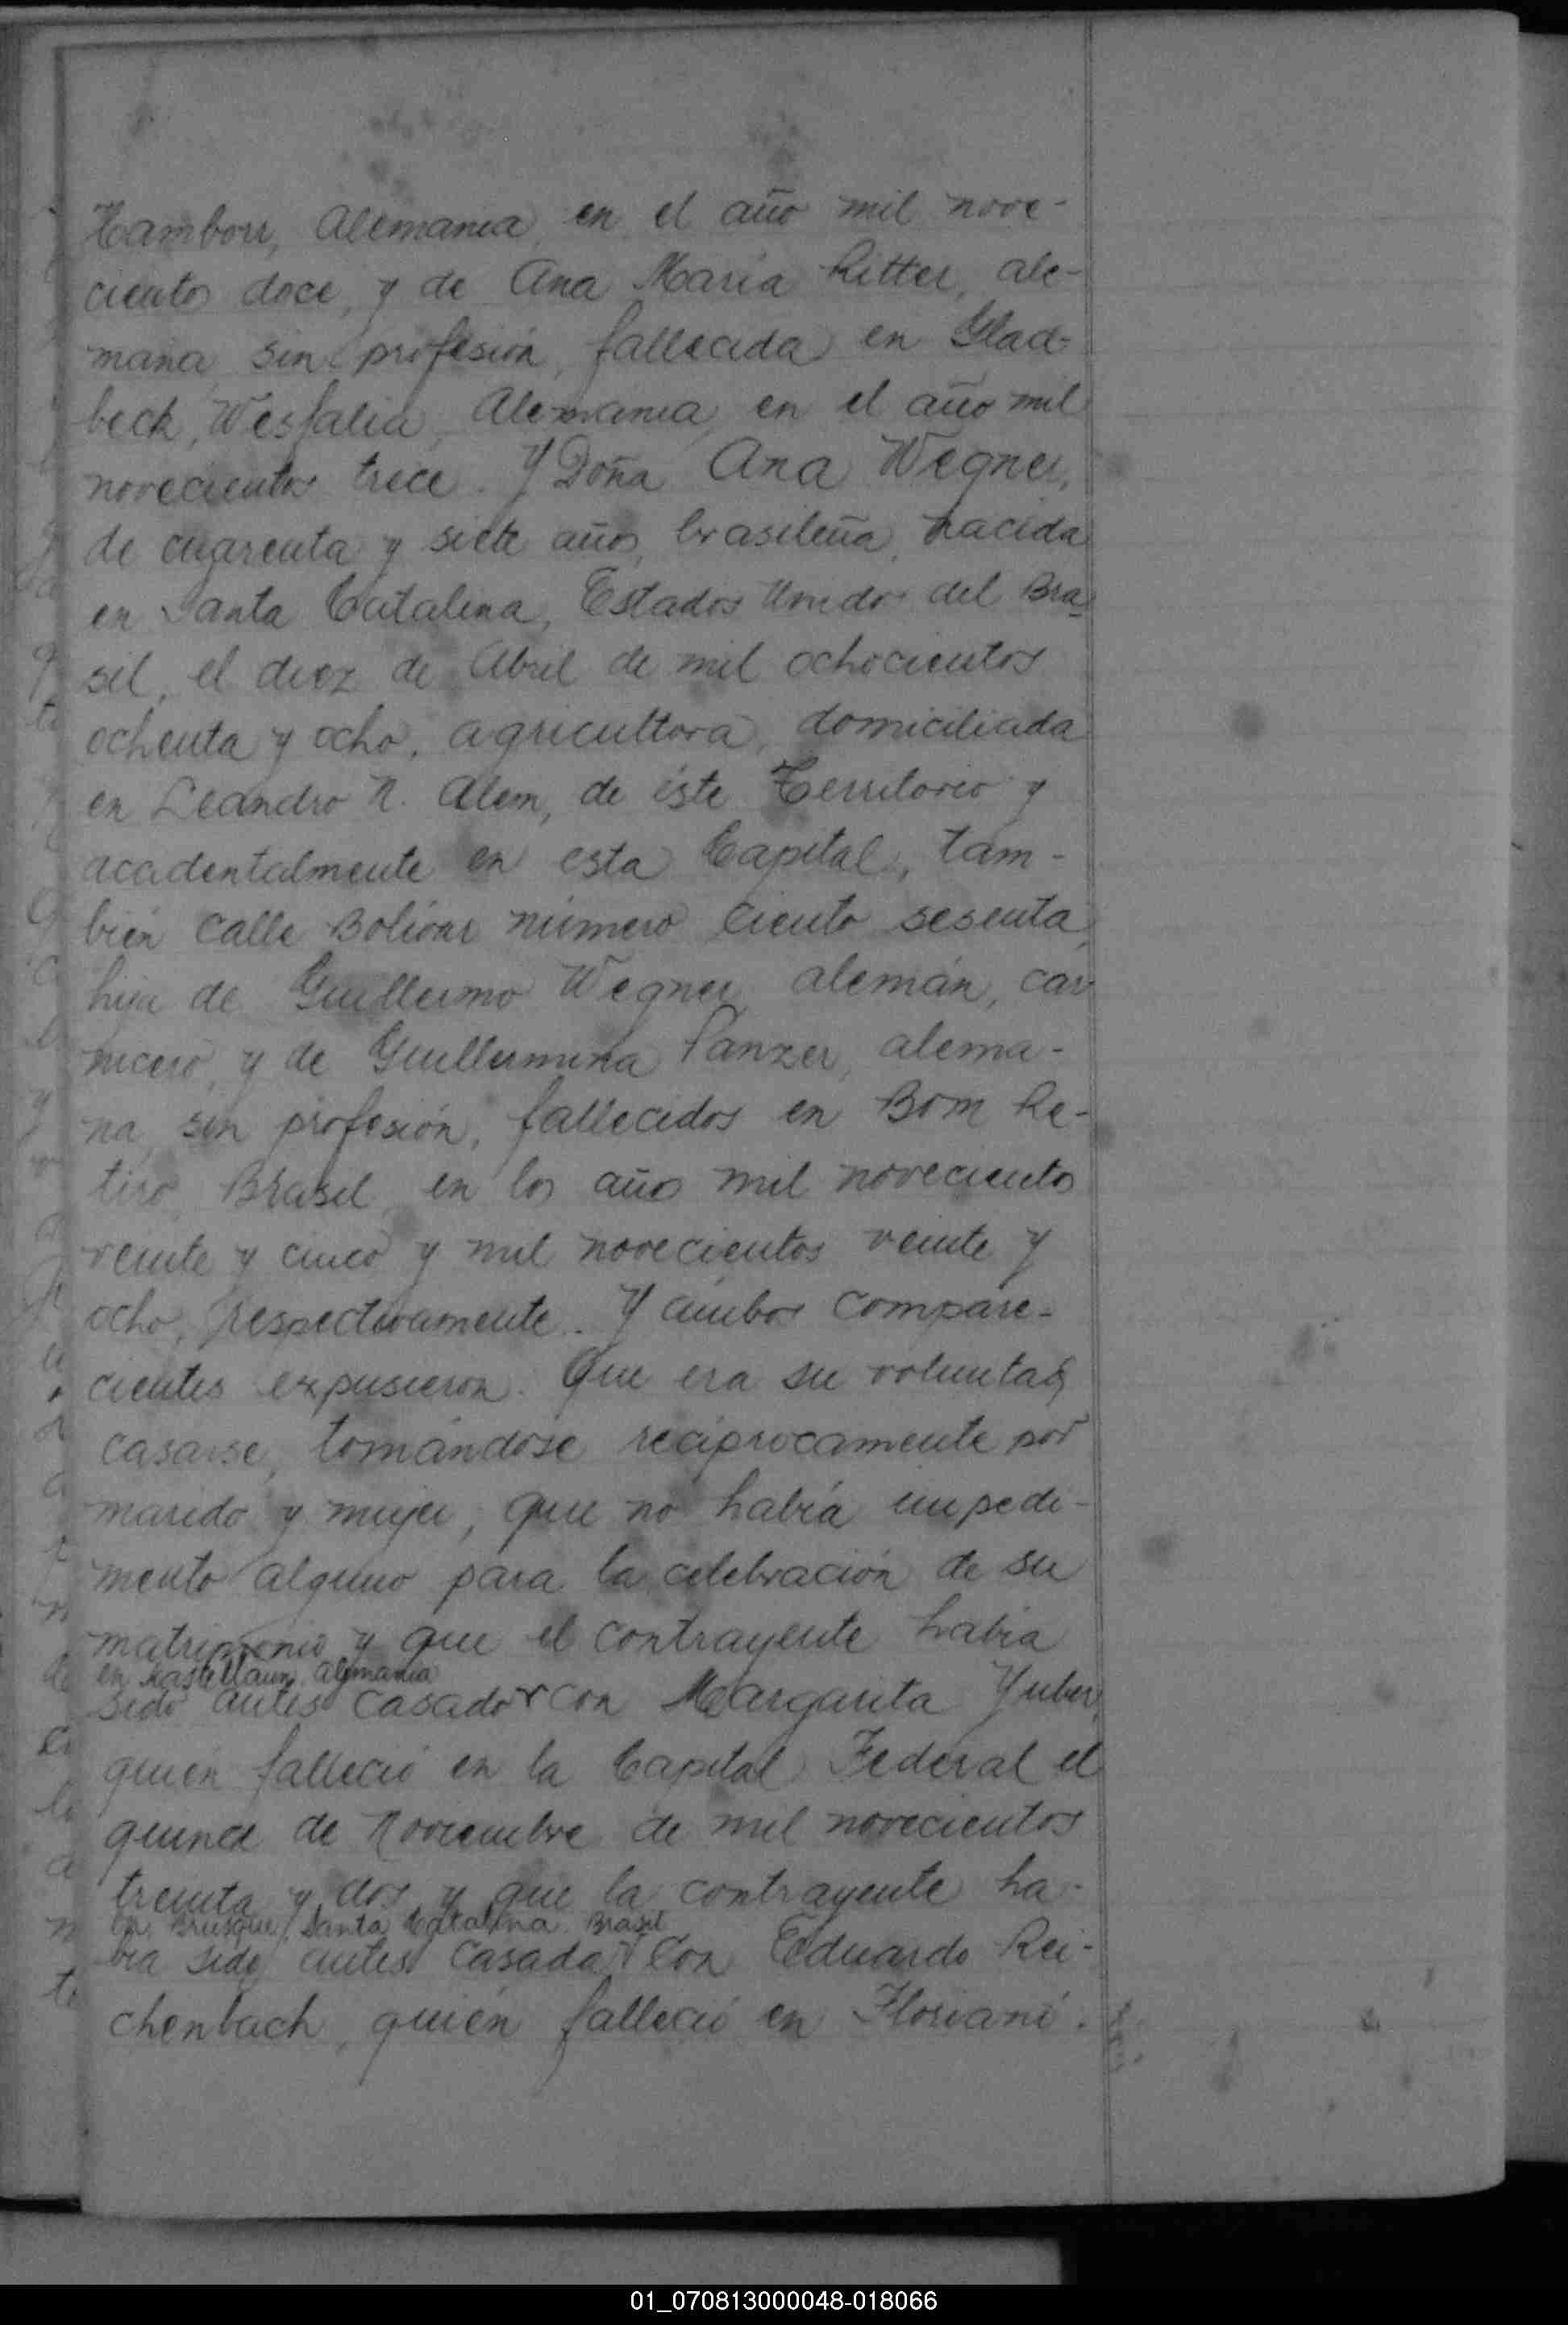 Hamborr, Alemania, en el año mil nove-
cientos doce, y de Ana María Ritter, ale-
mana, sin profesión, fallecida en Glad-
beck, Wesfalia, Alemania, en el año mil
novecientos trece. Y Doña Ana Wegner,
de cuarenta y siete años, brasileña, nacida
en Santa Catalina, Estados Unidos del Bra-
sil, el diez de Abril de mil ochocientos
ochenta y ocho, agricultora, domiciliada
en Leandro N. Alem, de éste Territorio y
accidentalmente en esta Capital, tam-
bién calle Bolívar número ciento sesenta,
hija de Guillermo Wegner, alemán, car-
nicero, y de Guillermina Panzer, alema-
na, sin profesión, fallecidos en Bom Re-
tiro, Brasil, en los años mil novecientos
veinte y cinco y mil novecientos veinte y
ocho, respectivamente. Y ambos compare-
cientes expusieron: Que era su voluntad
casarse, tomándose recíprocamente por
marido y mujer, que no había impedi-
mento alguno para la celebración de su
matrimonio y que el contrayente había
en Kastellaun, Alemania
sido antes casado con Margarita Yuber,
quién falleció en la Capital Federal el
quince de Noviembre de mil novecientos
treinta y dos y que la contrayente ha-
en Brusque, Santa Catalina. Brasil
bía sido antes casada con Eduardo Rei-
chenbach, quién falleció en Florianó.
01_070813000048-018066